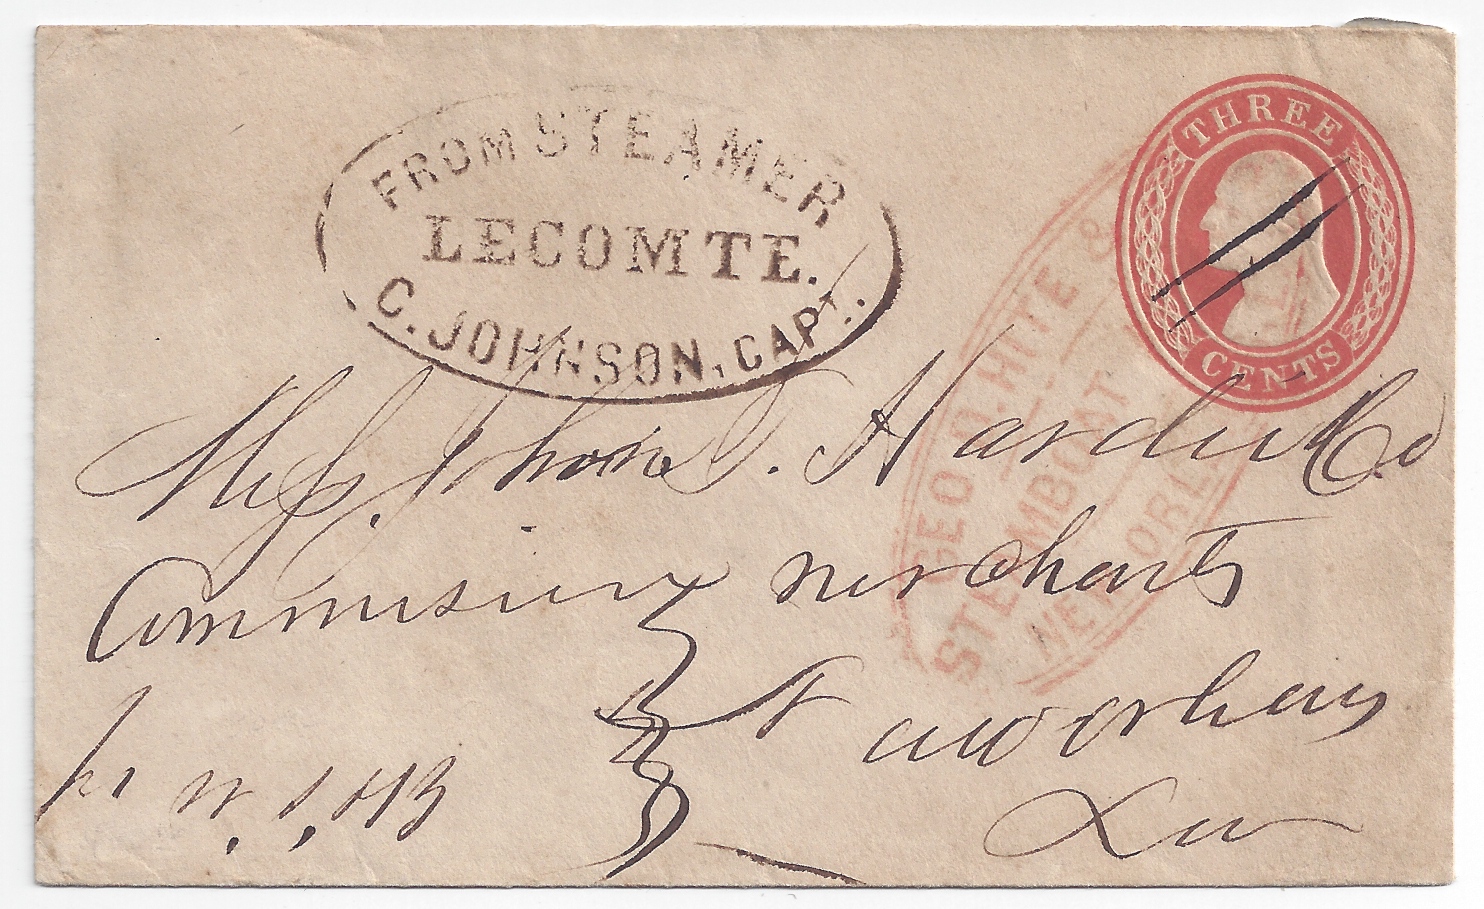 FROM STEAMER
LECOMTE.
C. JOHNSON, CAPT.
THREE
CENTS
GEO. D. HITE &
STEAMBOAT
NEW ORL
Mess. Johnson T. Hardie & Co
Commission merchants
New Orleans
La